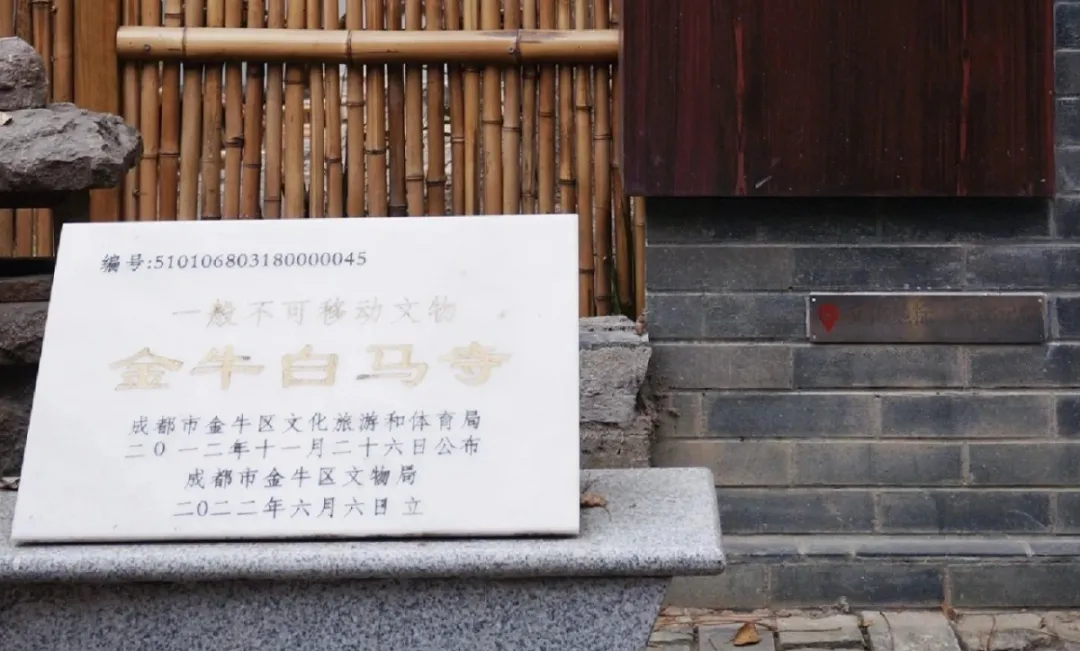 编号:510106803180000045
一般不可移动文物
金牛白马寺
成都市金牛区文化旅游和体育局
二0一二年十一月二十六日公布
成都市金牛区文物局
二0二二年六月六日立